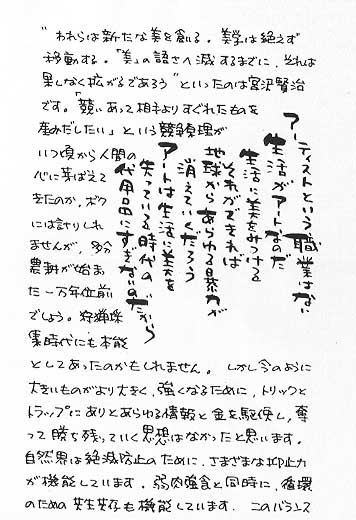 "われらは新たな美を創る。美学は絶えず
移動する。「美」の語さへ滅するまでに、それは
果しなく拡がるであろう"といったのは宮沢賢治
です。「競いあって相手よりすぐれたものを
産みだしたい」という競争原理が
いつ頃から人間の
心に芽ばえて
きたのか、ボク
には計りしれ
ませんが、多分
農耕が始まっ
た一万年位前
でしょう。狩猟採
集時代にも本能
としてあったのかもしれません。しかし今のように
大きいものがより大きく、強くなるために、トリックと
トラップにありとあらゆる情報と金を駆使し、奪
って勝ち残っていく思想はなかったと思います。
自然界は絶滅防止のために、さまざまな抑止力
が機能しています。弱肉強食と同時に、循環
のための共生共存も機能しています。このバランス
アーティストという職業はない
生活がアートなのだ
生活に美をみつける
それができれば
地球からあらゆる暴力が
消えていくだろう
アートは生活に美を
失っている時代の
代用品にすぎないのだから